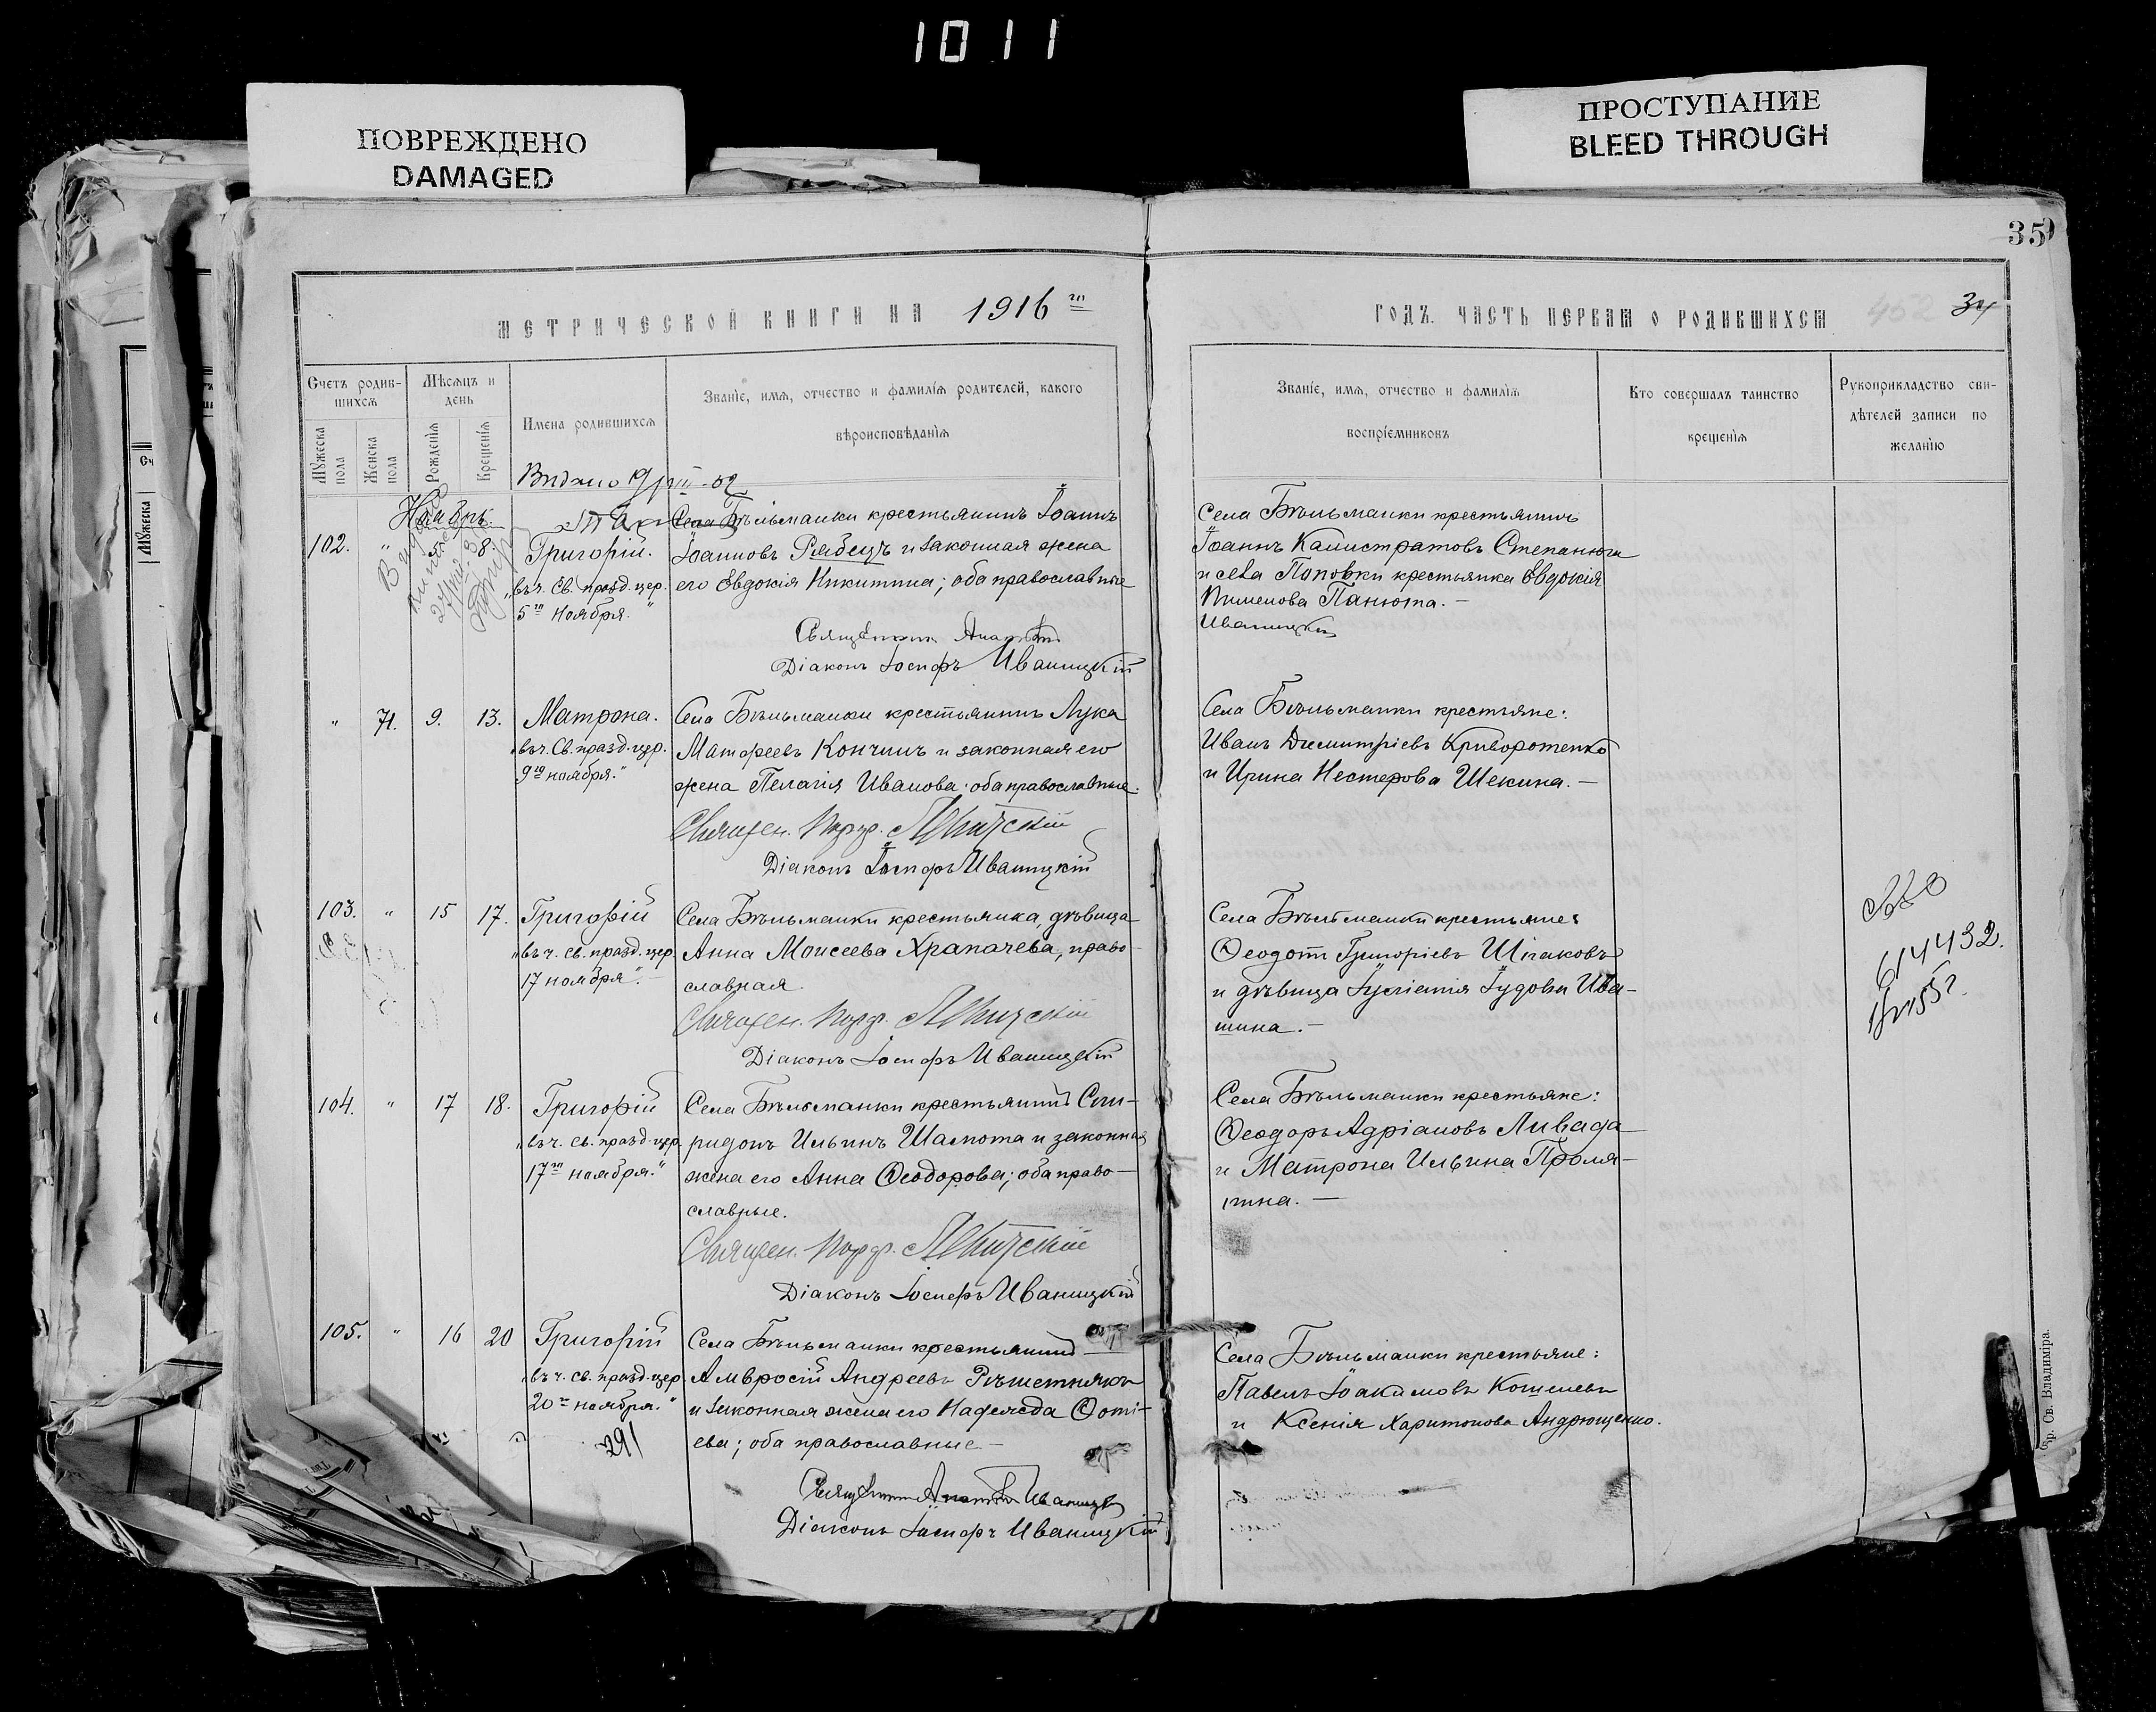 1011
ПОВРЕЖДЕНО
DAMAGED
ПРОСТУПАНИЕ
BLEED THROUGH
35
МЕТРИЧЕСКОЙ КНИГИ НА 1916 ГОДЪ. ЧАСТЬ ПЕРВАЯ О РОДИВШИХСЯ
Счетъ родив-
шихся
Мужеска пола
Женска пола
Мѣсяцъ и
день
Рожденія
Крещенія
Имена родившихся
Званіе, имя, отчество и фамилія родителей, какого
вѣроисповѣданія
Званіе, имя, отчество и фамилія
воспріемниковъ
Кто совершалъ таинство
крещенія
Рукоприкладство сви-
дѣтелей записи по
желанію
Ноябрь
102. " 5. 8. Григорій.
"въ ч. Св. празд. цер.
5го Ноября."
Села Бѣльманки крестьянинъ Іоаннъ
Іоанновъ Рябецъ и законная жена
его Евдокія Никитина; оба православные
Діаконъ Іосифъ Иваницкій
Села Бѣльманки крестьянинъ
Іоаннъ Каллистратовъ Степанюга
и села Поповки крестьянка Евдокія
Пименова Панюта. —
" 71. 9. 13. Матрона.
"въ ч. Св. празд. цер.
9го ноября."
Села Бѣльманки крестьянинъ Лука
Матфеевъ Кончинъ и законная его
жена Пелагія Иванова; оба православные.
Священ. Порф.
Діаконъ Іосифъ Иваницкій
Села Бѣльманки крестьяне:
Иванъ Димитріевъ Криворотенко
и Ирина Нестерова Шекина. —
103. " 15 17. Григорій
"въ ч. св. празд. цер.
17 ноября". —
Села Бѣльманки крестьянка, дѣвица
Анна Моисеева Храпачева, право-
славная
Священ. Порф.
Діаконъ Іосифъ Иваницкій
Села Бѣльманки крестьяне:
Ѳеодотъ Григоріевъ Шпаковъ
и дѣвица Іуліанія Іудова Ива-
шина. —
614432.
104. " 17 18. Григорій
"въ ч. св. празд. цер.
17го ноября."
Села Бѣльманки крестьянинъ Спи-
ридонъ Ильинъ Шамота и законная
жена его Анна Ѳеодорова; оба право-
славные.
Священ. Порф.
Діаконъ Іосифъ Иваницкій
Села Бѣльманки крестьяне:
Ѳеодоръ Адріановъ Ливада
и Матрона Ильина Проля-
гина. —
105. " 16 20 Григорій
"въ ч. св. празд. цер.
20го ноября."
291
Села Бѣльманки крестьянинъ
Амвросій Андреевъ Рѣшетнякъ
и законная жена его Надежда Фоті-
ева; оба православные —
Діаконъ Іосифъ Иваницкій
Села Бѣльманки крестьяне:
Павелъ Іоакимовъ Кошелевъ
и Ксенія Харитонова Андрющенко.
Бр. Св. Владиміра.